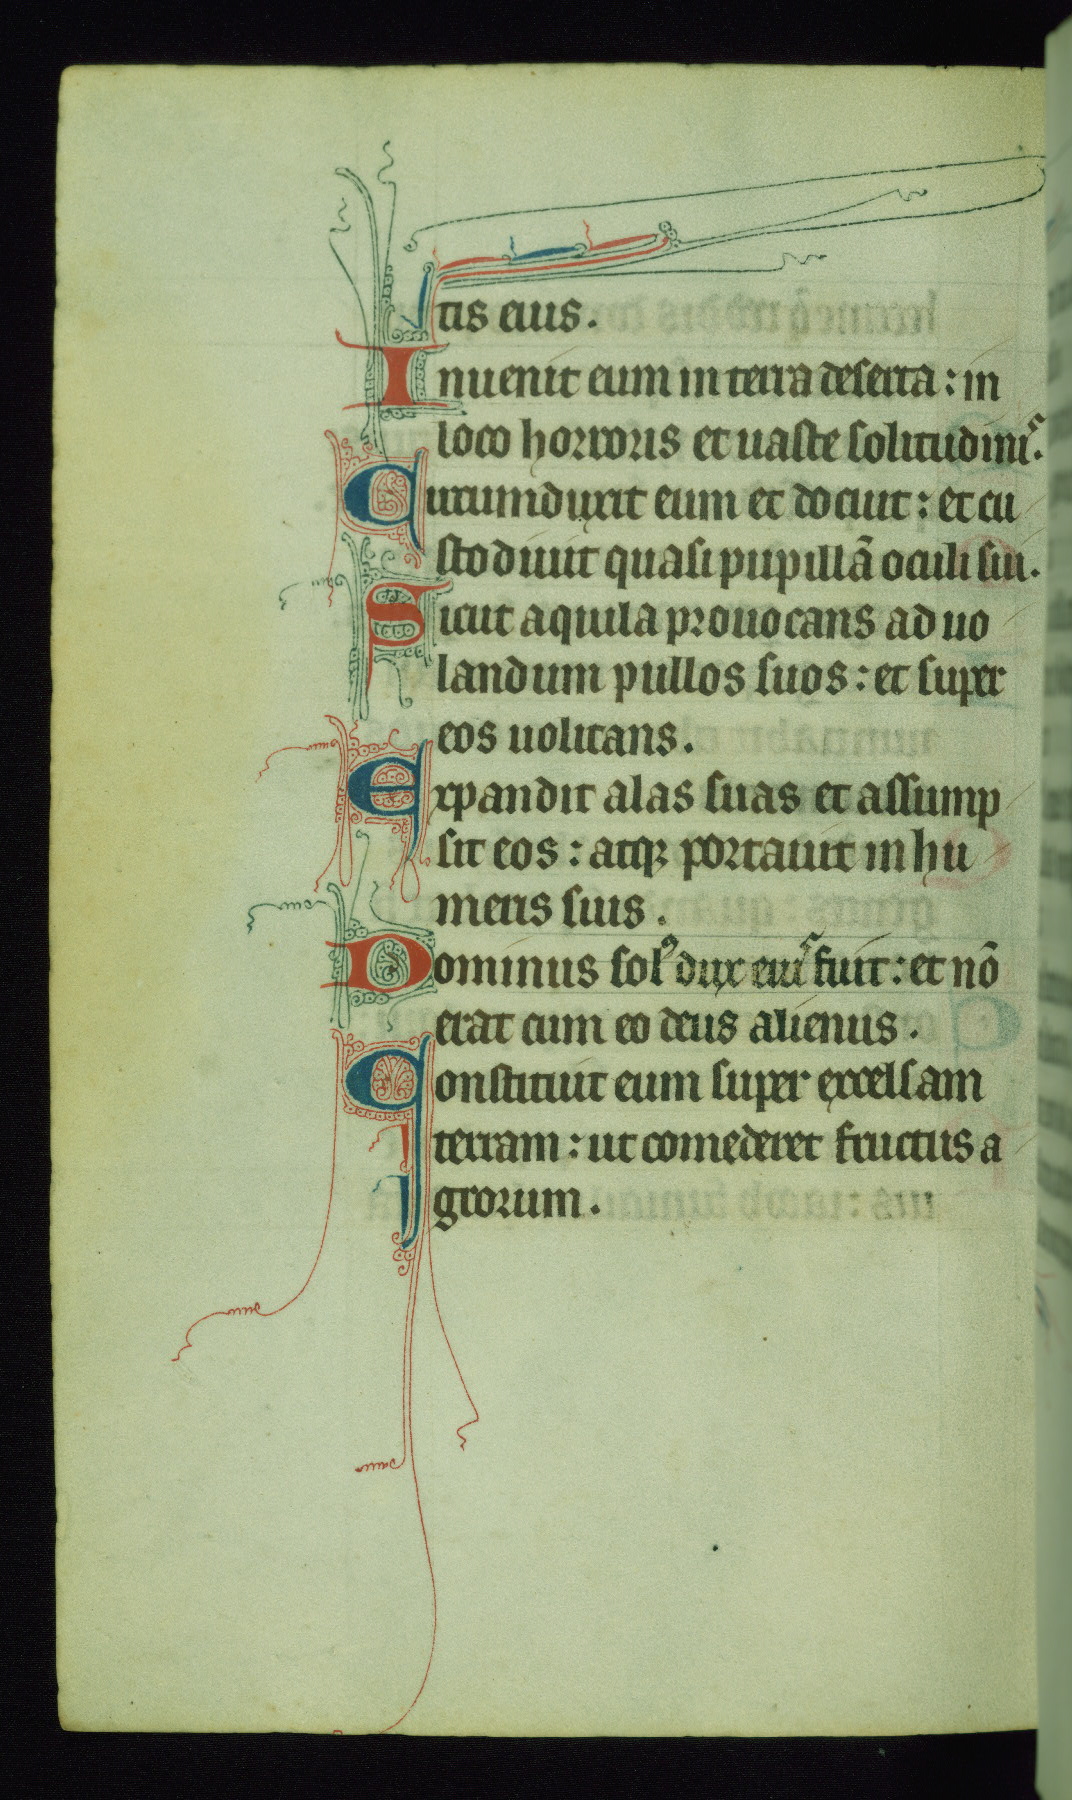 tis eius.
Inuenit eum in terra deserta: in
loco horroris et uaste solitudiniˢ.
Circumduxit eum et docuit: et cu
stodiuit quasi pupillā oculi sui.
Sicut aquila prouocans ad uo
landum pullos suos: et super
eos uolitans.
Expandit alas suas et assump
sit eos: atqꝫ portauit in hu
meris suis.
Dominus solꝰ dux eiuˢ fuit: et nō
erat cum eo deus alienus.
Constituit eum super excelsam
terram: ut comederet fructus a
grorum.